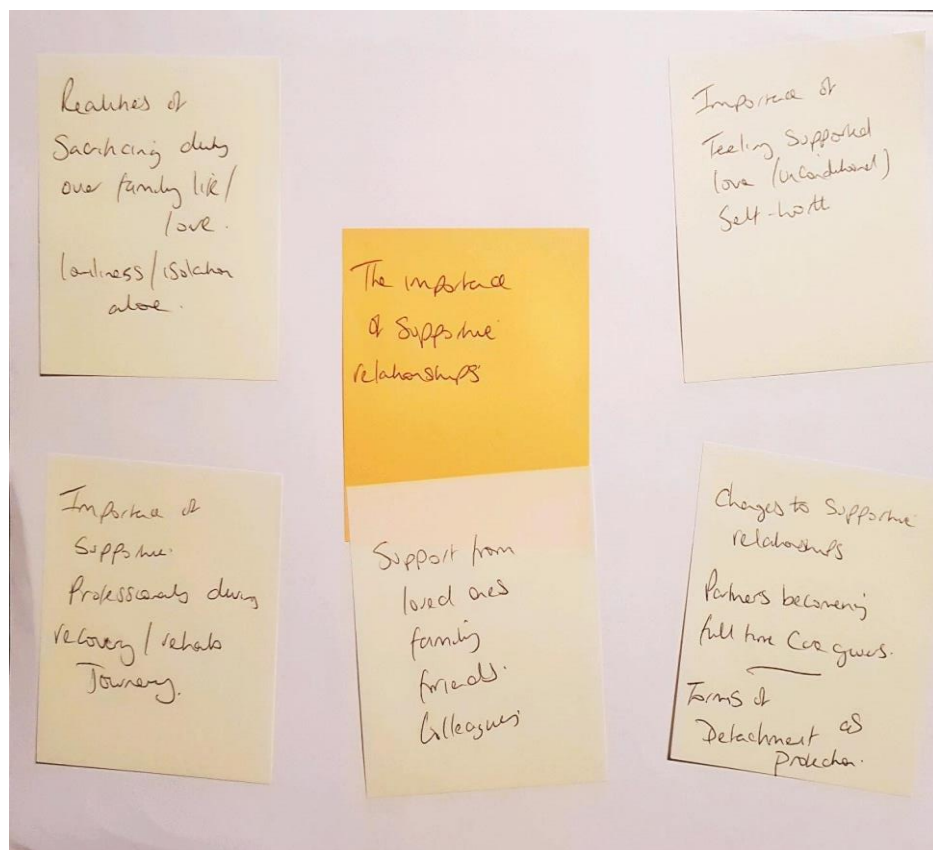 Realities of
Sacrificing duty
over family life/
love.
lonliness/isolation
alone.
The importance
of Supportive
relationships
Importance of
Feeling Supported
love (unconditional)
Self-worth
Importance of
Supportive
Professionals during
recovery/rehab
Journey.
Support from
loved ones
family
friends.
Colleagues
Changes to Supportive
relationships
Partners becoming
full time Care givers.
Forms of
Detachment as
Protection.